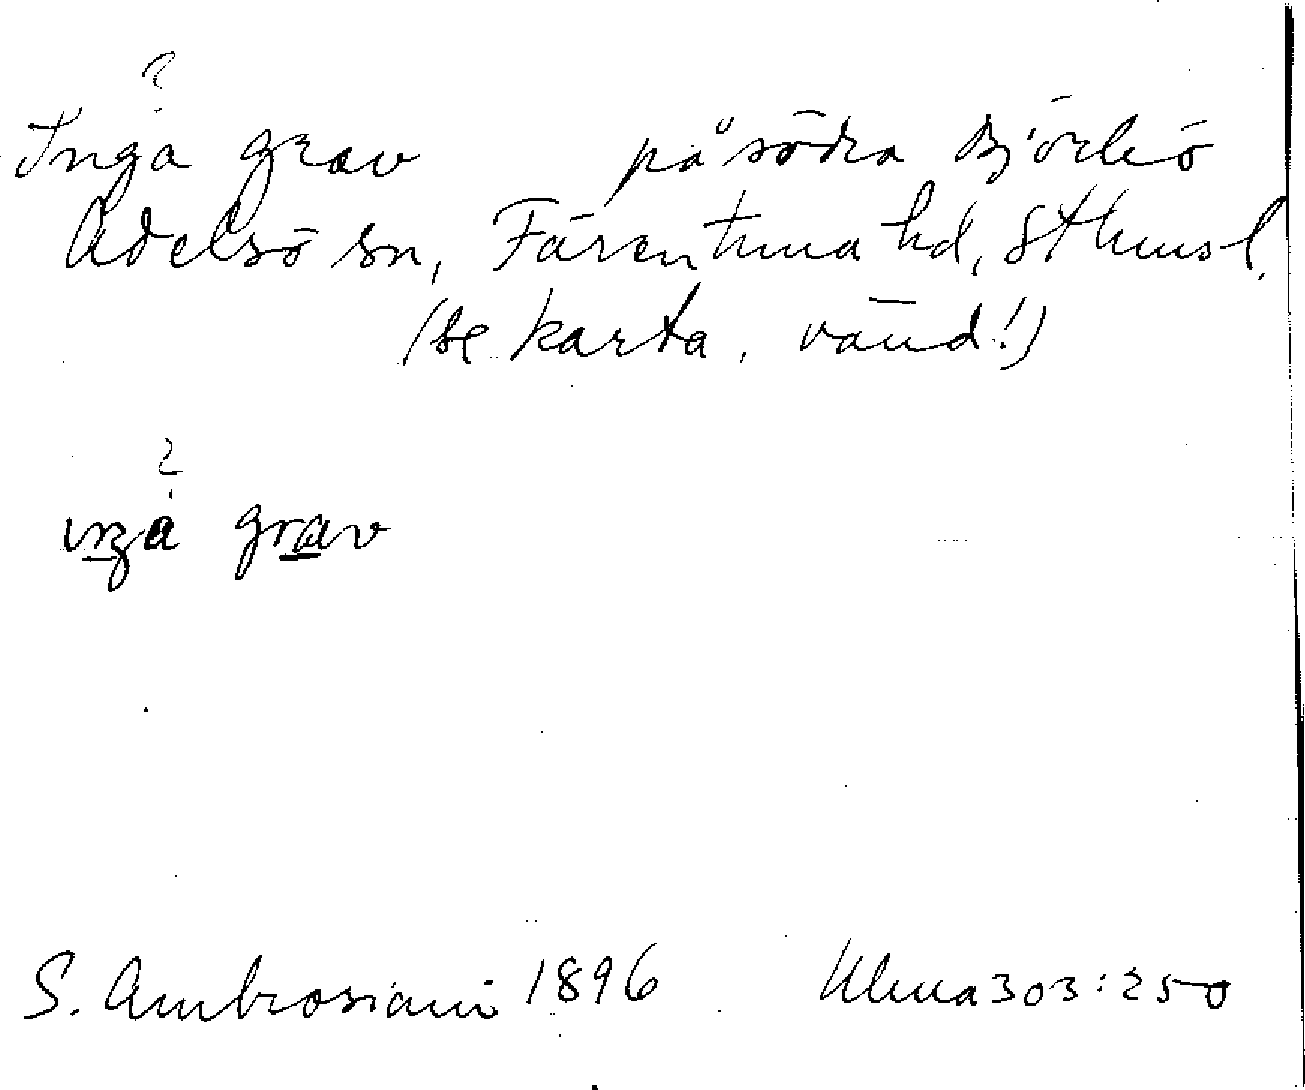 ?
Inga grav på södra Björkö
Adelsö sn, Färentuna hd, Sthms l.
(se karta, vänd!)
?
iŋa grav
S. Ambrosiani 1896 Ulma 303:250